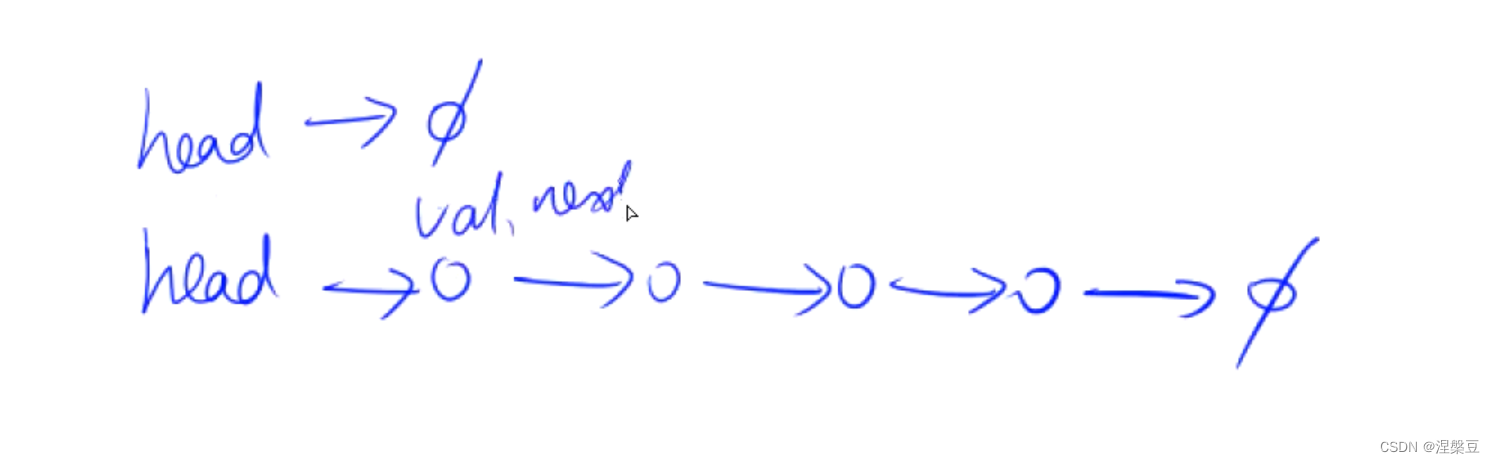 head → ϕ
val, next
head → O → O → O → O → ϕ
CSDN @涅槃豆